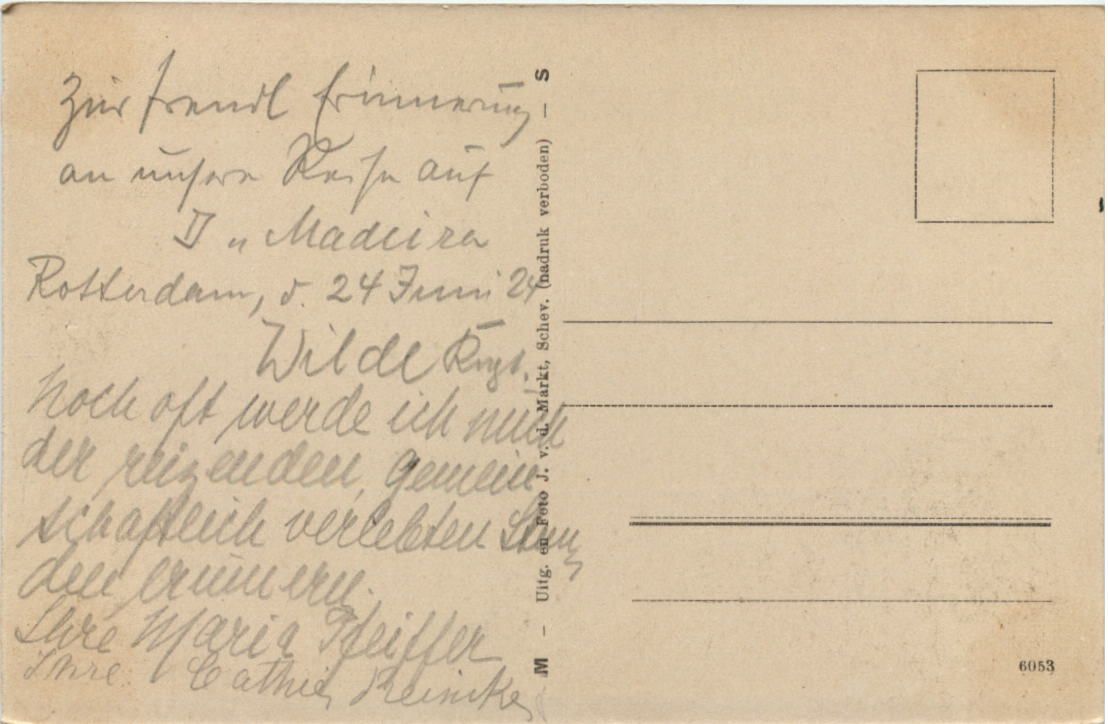 Zur freundl Erinnerung
an unsere Reise auf
D „ Madeira
Rotterdam, d. 24 Juni 24
Wilde
Noch oft werde ich mich
der reizenden, gemein
schaftlich verlebten Stun
den erinnern.
Ihre Maria Pfeiffer
Ihre Cathie Reincke
M – Uitg. en Foto J. v. d. Markt, Schev. (nadruk verboden) – S
6053